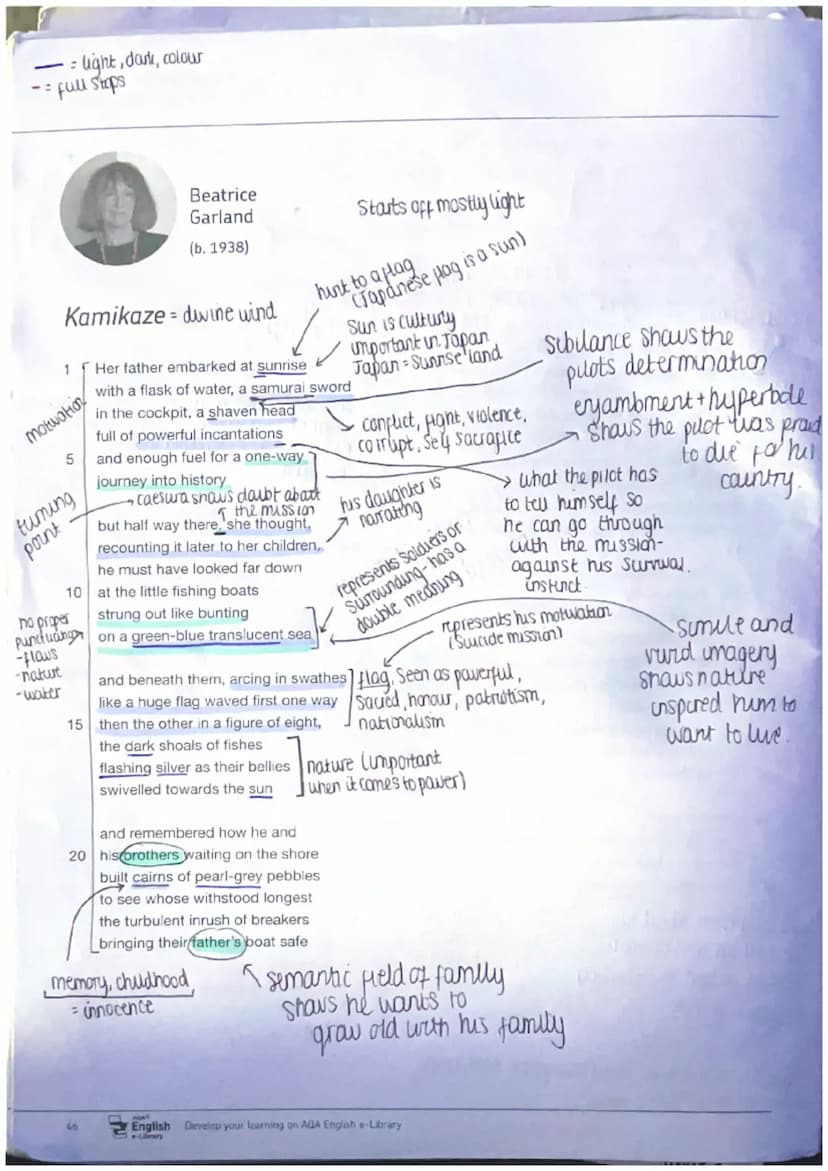 — = light, dark, colour
- = full stops
Beatrice
Garland
(b. 1938)
Starts off mostly light
hint to a flag
(Japanese flag is a sun)
Kamikaze = divine wind
Sun is cultury
important in Japan
Japan = Sunrise land
sibilance shows the
pilots determination
enjambment + hyperbole
shows the pilot was proud
to die for his
country.
motivation
1 Her father embarked at sunrise
with a flask of water, a samurai sword
in the cockpit, a shaven head
full of powerful incantations
5 and enough fuel for a one-way
journey into history
conflict, fight, violence,
corrupt, self sacrafice
→ caesura shows doubt about
the mission
turning
point
his daughter is
narrating
what the pilot has
to tell himself so
he can go through
with the mission-
against his survival
instinct.
but half way there, she thought,
recounting it later to her children,
he must have looked far down
10 at the little fishing boats
strung out like bunting
on a green-blue translucent sea
represents soldiers or
surrounding - has a
double meaning
no proper
punctuation
-flows
-nature
-water
represents his motivation
(suicide mission)
simile and
vivid imagery
shows nature
inspired him to
want to live.
and beneath them, arcing in swathes
like a huge flag waved first one way
15 then the other in a figure of eight,
the dark shoals of fishes
flashing silver as their bellies
swivelled towards the sun
flag, seen as powerful,
sacred, honour, patriotism,
nationalism
nature (important
when it comes to power)
and remembered how he and
20 his brothers waiting on the shore
built cairns of pearl-grey pebbles
to see whose withstood longest
the turbulent inrush of breakers
bringing their father's boat safe
memory, childhood
= innocence
semantic field of family
shows he wants to
grow old with his family
46
English
e-Library
Develop your learning on AQA English e-Library